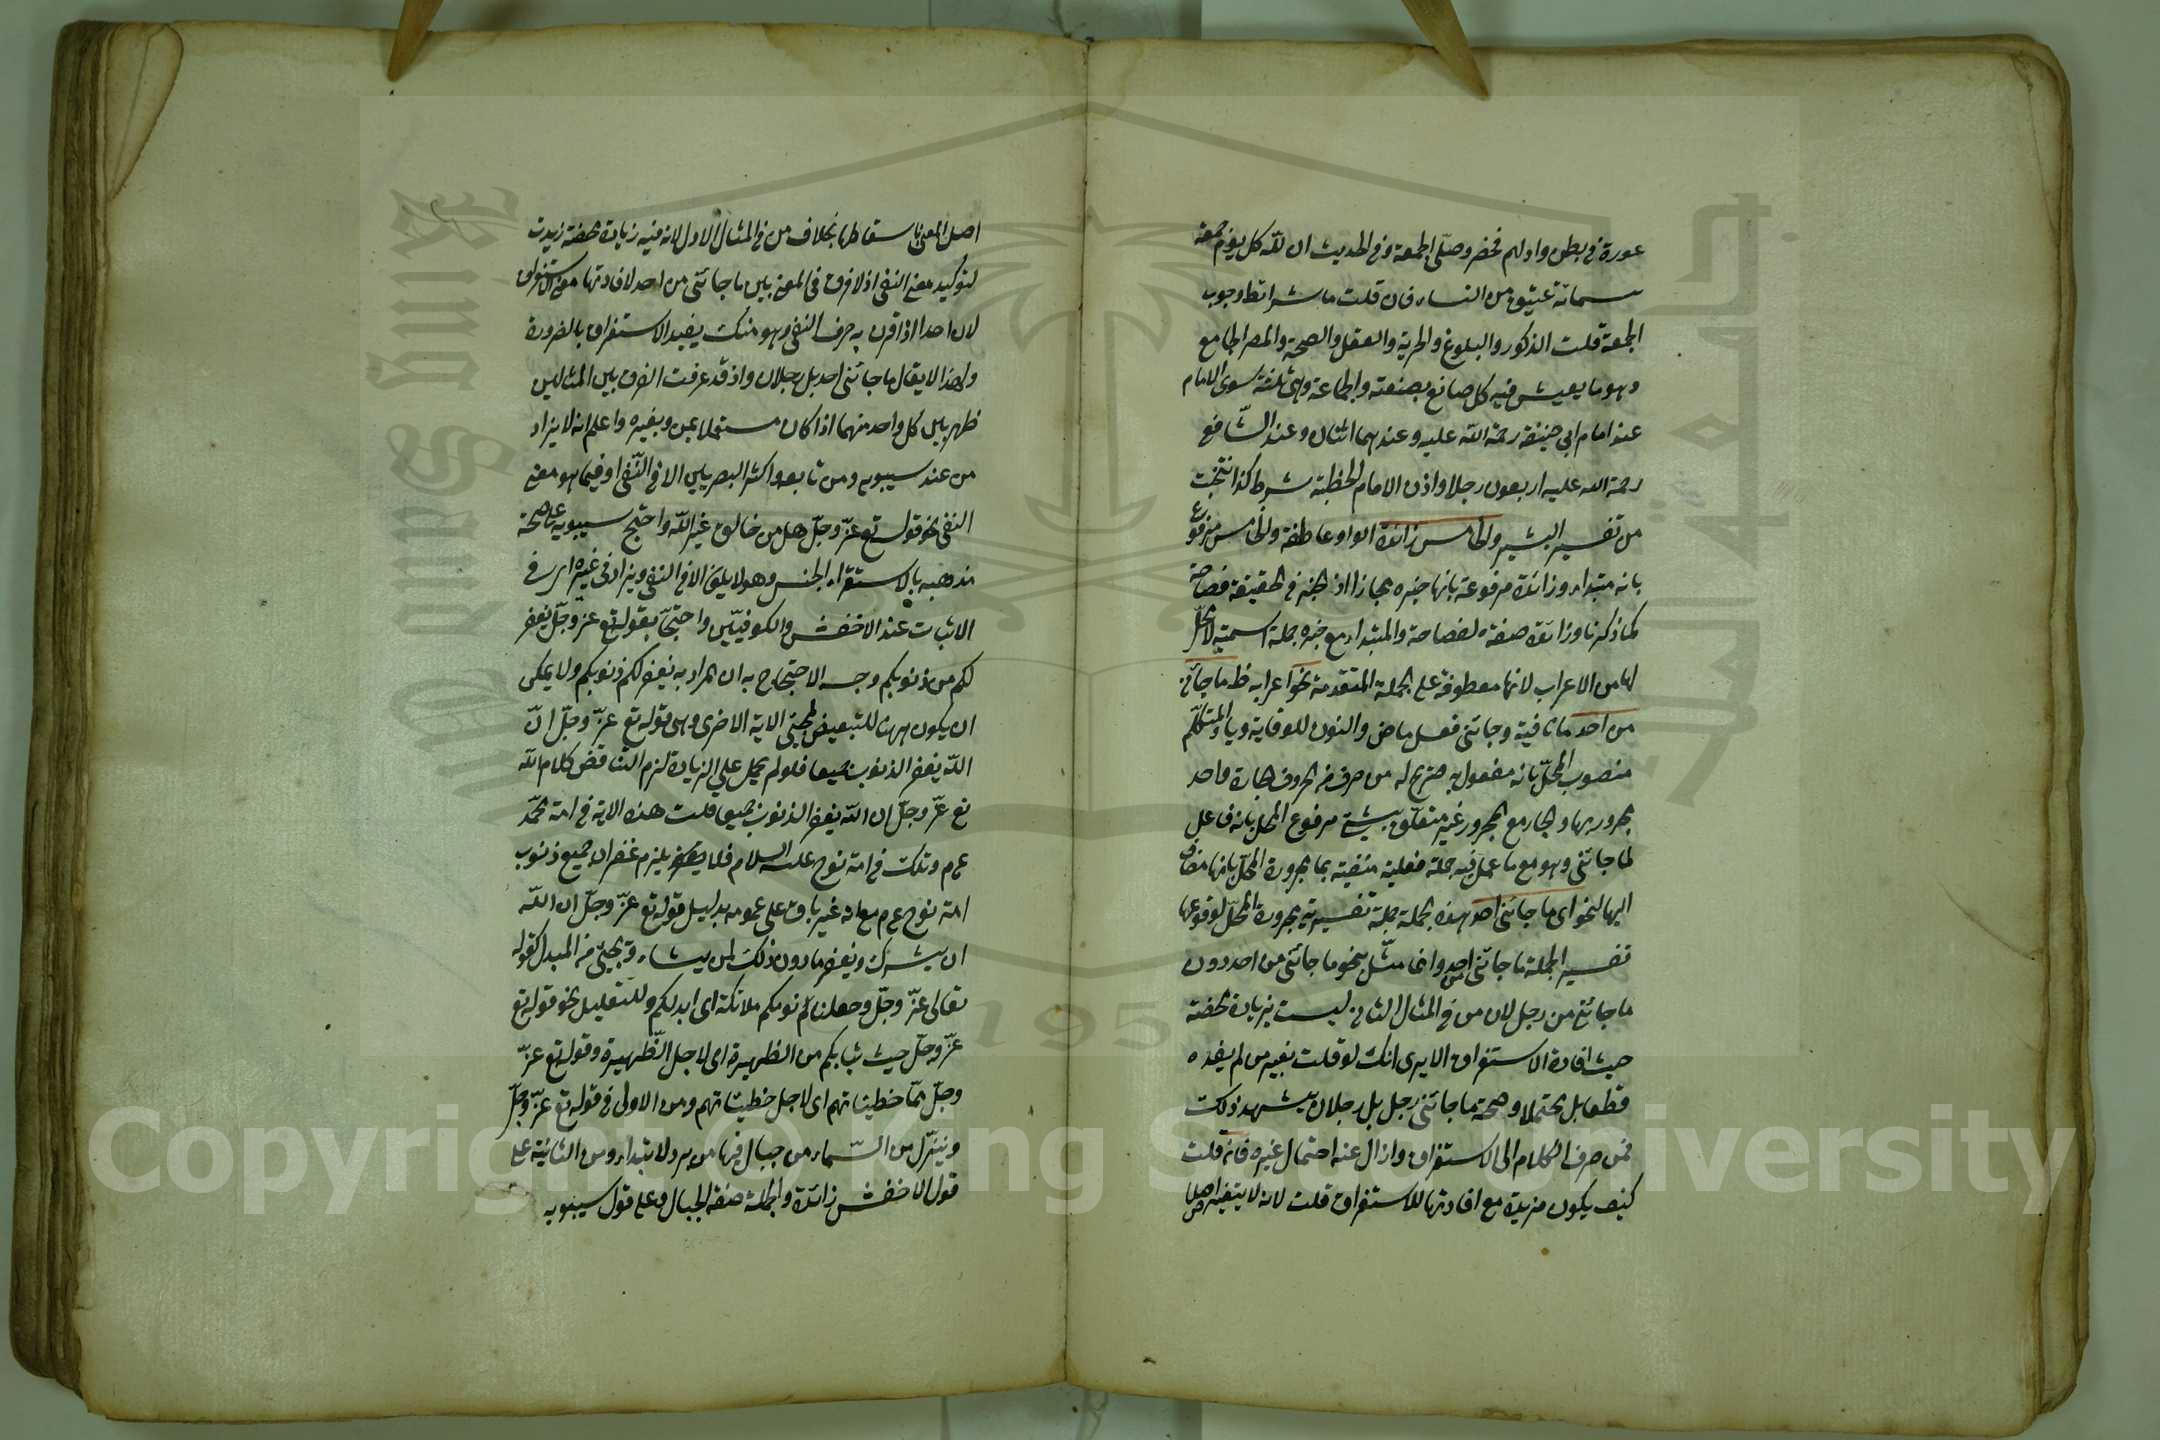 عورة في بطن واد لهم فحضر وصلى الجمعة وفي الحديث ان لله كل يوم جمعة
ستمائة عتيق من النار فان قلت ما شرائط وجوب
الجمعة قلت الذكور والبلوغ والحرية والعقل والصحة والمصر الجامع
وهو ما يعيش فيه كل صانع بصنعته والجماعة وهى ثلثة سوى الامام
عند امام ابي حنيفة رحمة الله عليه وعندهما اثنان وعند الشافع
رحمة الله عليه اربعون رجلا واذن الامام لخطبة شرط كذا انتخبت
من تفسير البشير والخامس زائدة الواو عاطفة والخامس مرفوع
بانه مبتداء وزائدة مرفوعة بانها خبره مجازا اذ الخبر في الحقيقة فصاحة
كما ذكرنا وزائدة صفة لفصاحة والمبتداء مع خبره جملة اسمية لا محل
لها من الاعراب لانها معطوفة على الجملة المتقدمة نحو اعرابه ظ ما جائني
من احد ما نافية وجائنى فعل ماض والنون للوقاية وياء المتكلم
منصوب المحل بانه مفعول به صريح له من حرف من الحروف الجارة واحد
مجرور بها والجار مع المجرور غير متعلق بشئ مرفوع المحل بانه فاعل
لما جائنى وهو مع ما عمل فيه جملة فعلية منفية بما مجرورة المحل بانها مضاف
اليها لنحو اى ما جائنى احد هذه الجملة جملة تفسيرية مجرورة المحل لوقوعها
تفسير الجملة ما جائنى من احد وانما مثل بنحو ما جائني من احد دون
ما جائني من رجل لان من في المثال الثاني ليست بزيادة محضة
حيث افادة الاستغراق الا يرى انك لو قلت بغير من لم يفده
قطعا بل محتملا وصحة ما جائنى رجل بل رجلان يشهد ذلك
فمن صرف الكلام الى الاستغراق وازال عنه احتمال غيره فان قلت
كيف يكون مزيدة مع افادتها للاستغراق قلت لانه لا يتغير اصل
اصل المعنى باسقاطها بخلاف من في المثال الاول لانه فيه زيادة محضة زيدت
لتوكيد معنى النفى اذ لا فرق في المعنى بين ما جائنى من احد لافادتها معنى الاستغراق
لان احدا اذا قرن به حرف النفى وهو منك يفيد الاستغراق بالضرورة
ولهذا لا يقال ما جائنى احد بل رجلان واذ قد عرفت الفرق بين المثالين
ظهر بين كل واحد منهما اذا كان مستعملا بمن وبغيره واعلم انه لا يزاد
من عند سيبويه ومن تابعه واكثر البصريين الا في النفى او فيما هو معنى
النفى نحو قوله تع عز وجل هل من خالق غير الله واحتج سيبويه على صحة
مذهبه بالاستقراء الجنس وهو لا يلقى الا في النفى ويزاد في غيره اى في
الاثبات عند الاخفش والكوفيين واحتجا بقوله تع عز وجل يغفر
لكم من ذنوبكم وجه الاحتجاج به ان المراد به يغفر لكم ذنوبكم ولا يمكن
ان يكون ههنا للتبعيض لمجئ الاية الاخرى وهى قوله تع عز وجل ان
الله يغفر الذنوب جميعا فلو لم يحمل على الزيادة لزم التناقض كلام الله
تع عز وجل ان الله يغفر الذنوب جميعا قلت هذه الاية في امة محمد
ع م وتلك في امة نوح عليه السلام فلا يلزم غفران جميع ذنوب
امة نوح ع م مع انه غير باق على عمومه بدليل قوله تع عز وجل ان الله
ان يشرك ويغفر ما دون ذلك لمن يشاء وتجئ من المبدل كقوله
تعالى عز وجل وجعلنا لم نومكم ملائكة اى ابدلكم وللتعليل نحو قوله تع
عز وجل حيث ثيابكم من الظهيرة اى لاجل الظهيرة وقوله تع عز
وجل مما خطيئاتهم اى لاجل خطيئاتهم ومن الاولى في قوله تع عز وجل
وينزل من السماء من جبال فيها من برد لابتداء ومن الثانية على
قول الاخفش زائدة والجملة صفة الجبال وعلى قول سيبويه